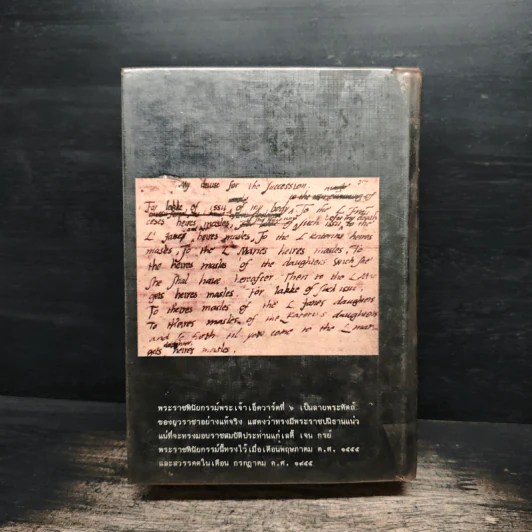 My devise for the Succession.
To lakke of issu of my body. To the L
heires masles,
L Janes heires masles, To the L Katerins heires
masles, To the L Maries heires masles, To
the heires masles of the daughters wich she
she shal have hereafter. Then to the L Mar
gets heires masles. For lakke of such issu,
To theires masles of the L Janes daughters
To theires masles of the L Katerins daughters
and so forth til you come to the L Mar
gets daughters heires masles.
พระราชพินัยกรรมพระเจ้าเอ็ดวาร์ดที่ ๖ เป็นลายพระหัตถ์
ของยุวราชาอย่างแท้จริง แสดงว่าทรงมีพระราชปณิธานแน่ว
แน่ที่จะทรงมอบราชสมบัติประทานแก่เลดี้ เจน เกรย์
พระราชพินัยกรรมนี้ทรงไว้เมื่อเดือนพฤษภาคม ค.ศ. ๑๕๕๕
และสวรรคตในเดือน กรกฎาคม ค.ศ. ๑๕๕๕